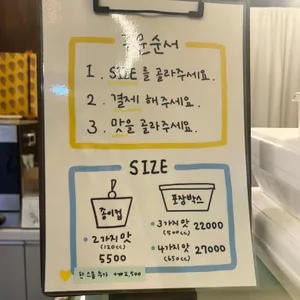 주문순서
1. SIZE를 골라주세요.
2. 결제 해주세요.
3. 맛을 골라주세요.
SIZE
종이컵
• 2가지맛
(120cc)
5500
포장박스
• 3가지맛 22000
(500cc)
• 4가지맛 27000
(650cc)
한스쿱 추가